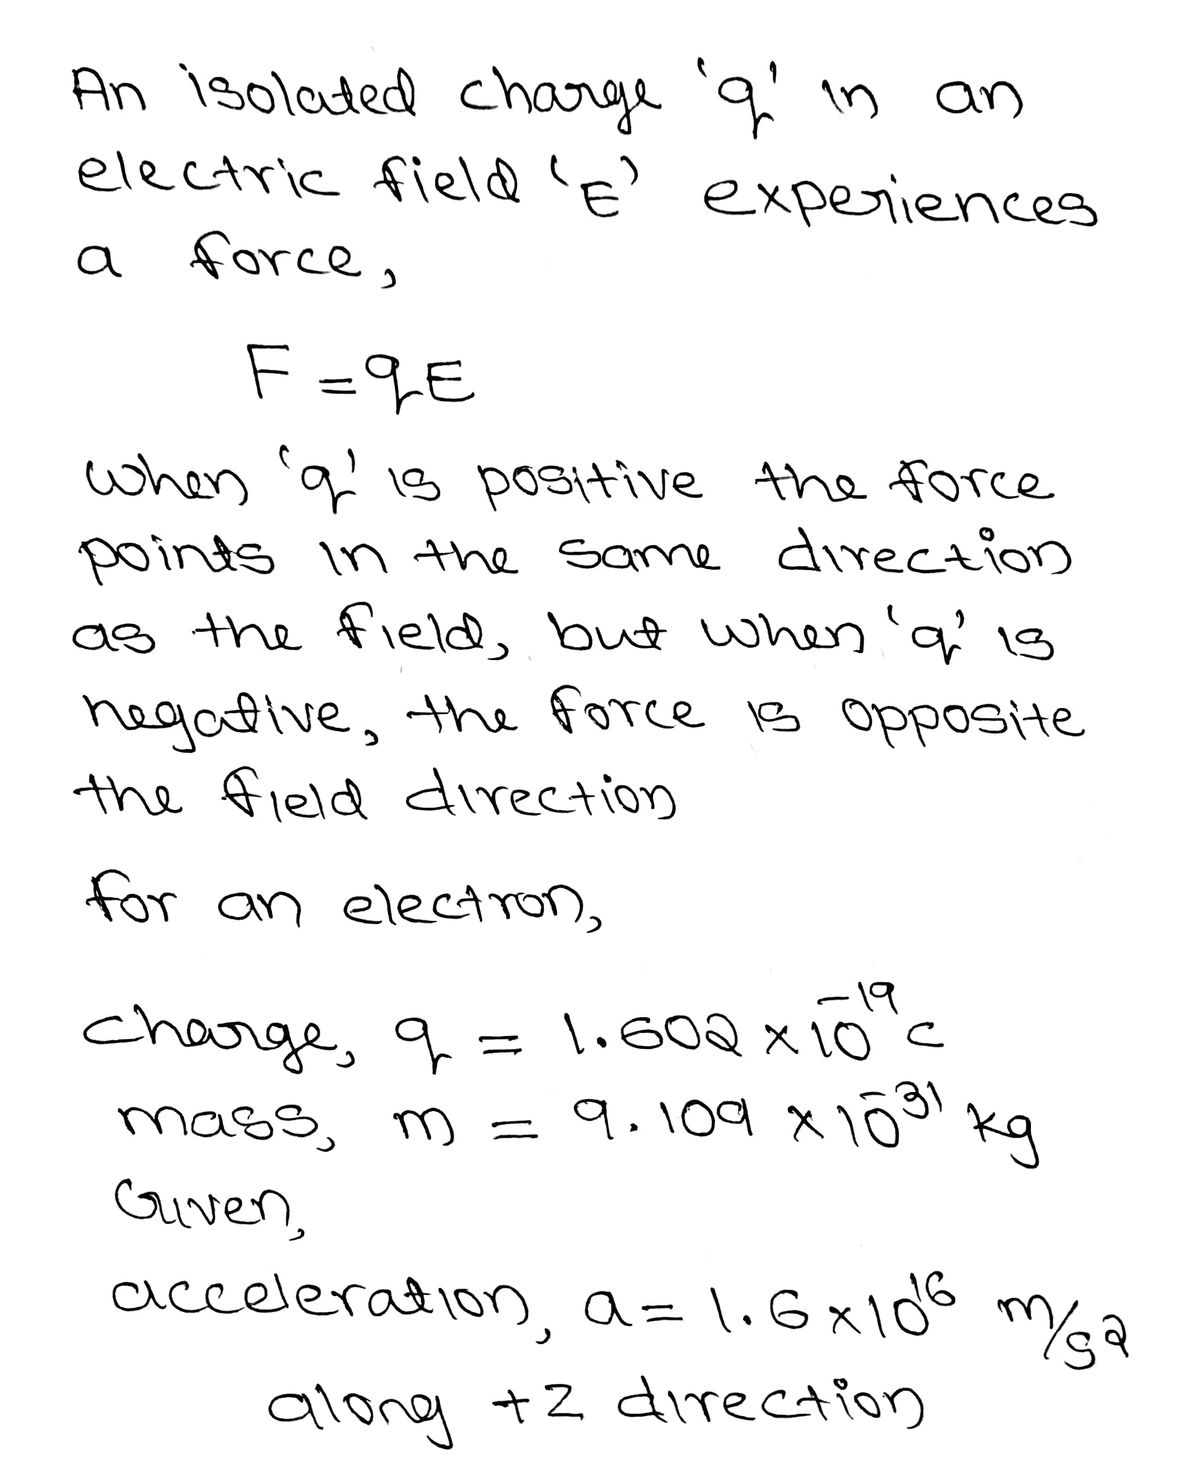 An isolated charge 'q' in an
electric field 'E' experiences
a force,
F = qE
when 'q' is positive the force
points in the same direction
as the field, but when 'q' is
negative, the force is opposite
the field direction
for an electron,
charge, q = 1.602 × 10⁻¹⁹ c
mass, m = 9.109 × 10⁻³¹ kg
Given,
acceleration, a = 1.6 × 10¹⁶ m/s2
along +z direction